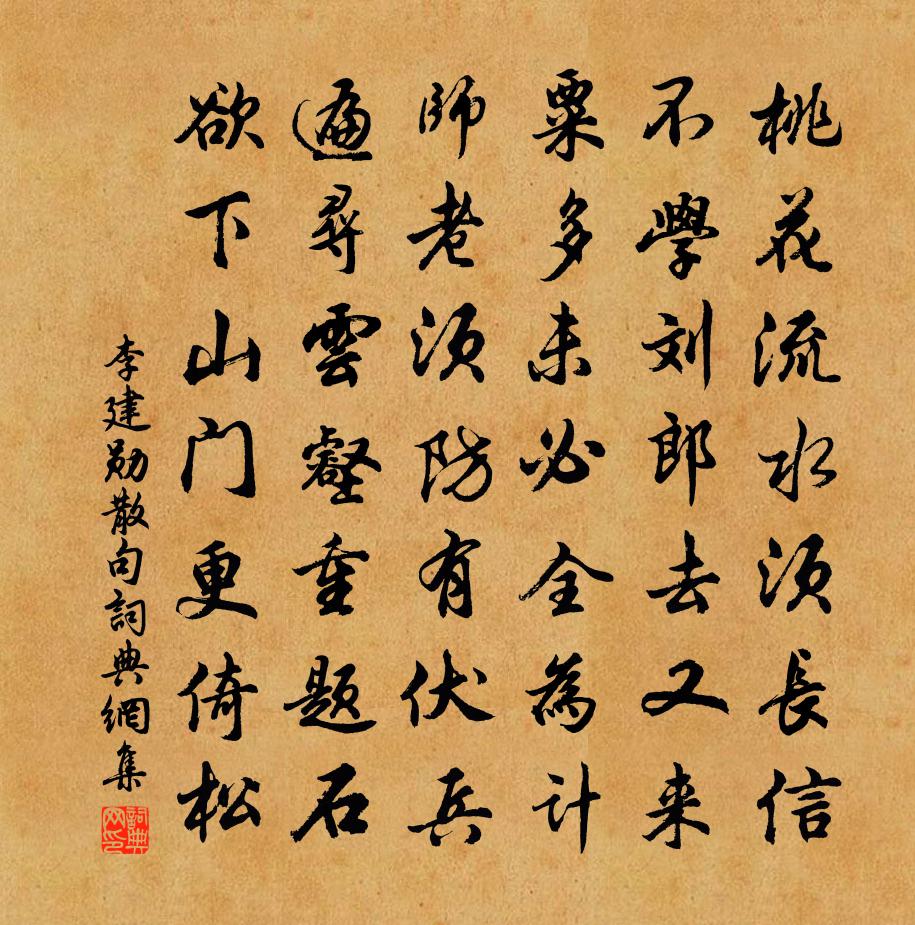 桃花流水须長信
不學刘郎去又来
粟多未必全為計
師老须防有伏兵
遍尋雲壑重題石
欲下山门更倚松
李建勋散句詞典網集
詞典网印